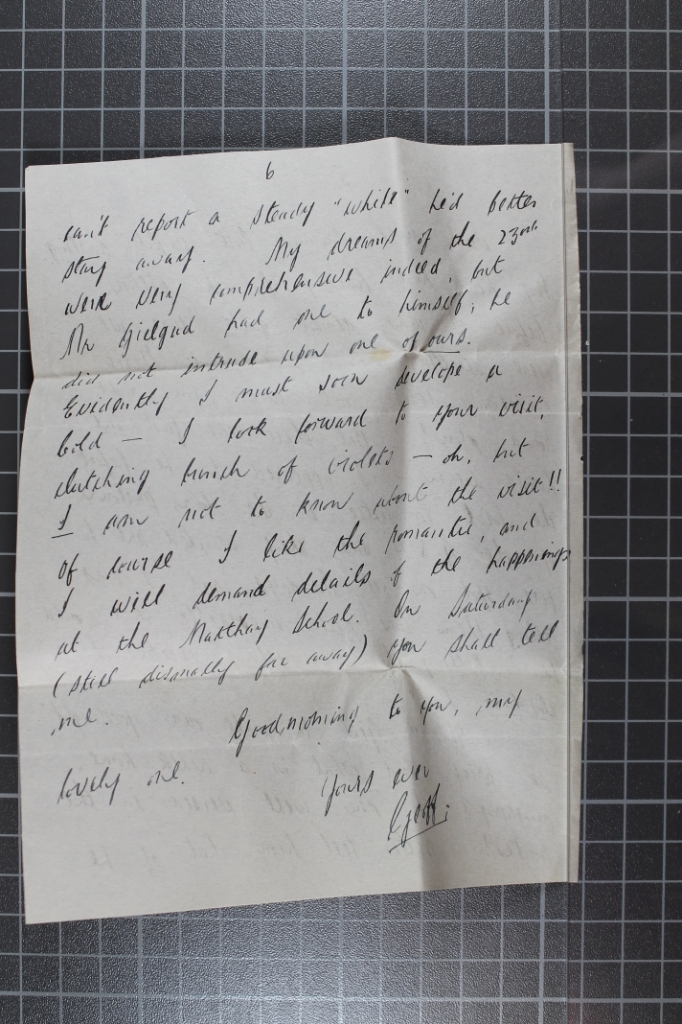 6
can't report a steady "white" he'd better
stay away. My dreams of the 23rd
were very comprehensive indeed, but
Mr Gielgud had one to himself; he
did not intrude upon one of ours.
Evidently I must soon develope a
Cold — I look forward to your visit,
clutching bunch of violets — oh, but
I am not to know about the visit!!
Of course I like the romantic, and
I will demand details of the happenings
at the School. On Saturday
(still dismally far away) you shall tell
me. Goodmorning to you, my
lovely one.
Yours ever
Geoff.